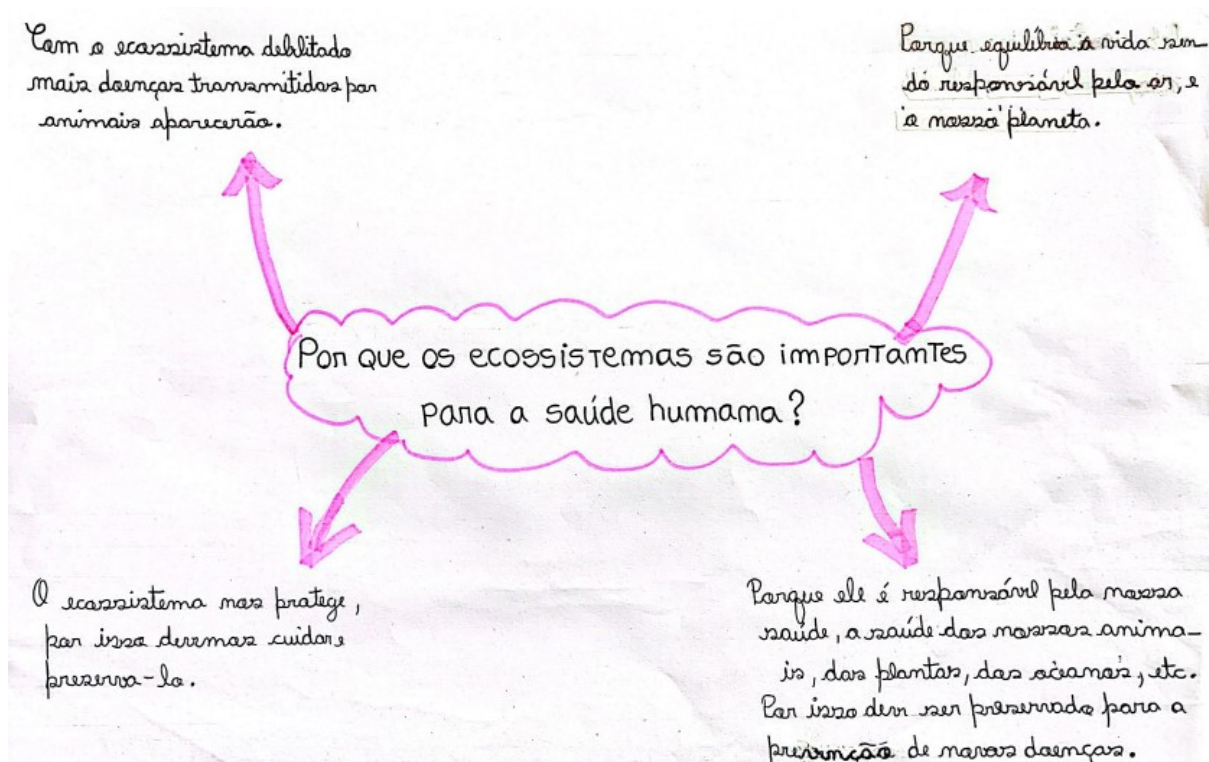 Com o ecossistema debilitado
mais doenças transmitidas por
animais aparecerão.
Porque equilibria a vida sen-
do responsável pelo ar, e
o nosso planeta.
Por que os ecossistemas são importantes
para a saúde humana?
O ecossistema nos protege,
por isso devemos cuidar e
preserva-lo.
Porque ele é responsável pela nossa
saúde, a saúde dos nossos anima-
is, das plantas, dos oceanos, etc.
Por isso deve ser preservado para a
prevenção de novas doenças.